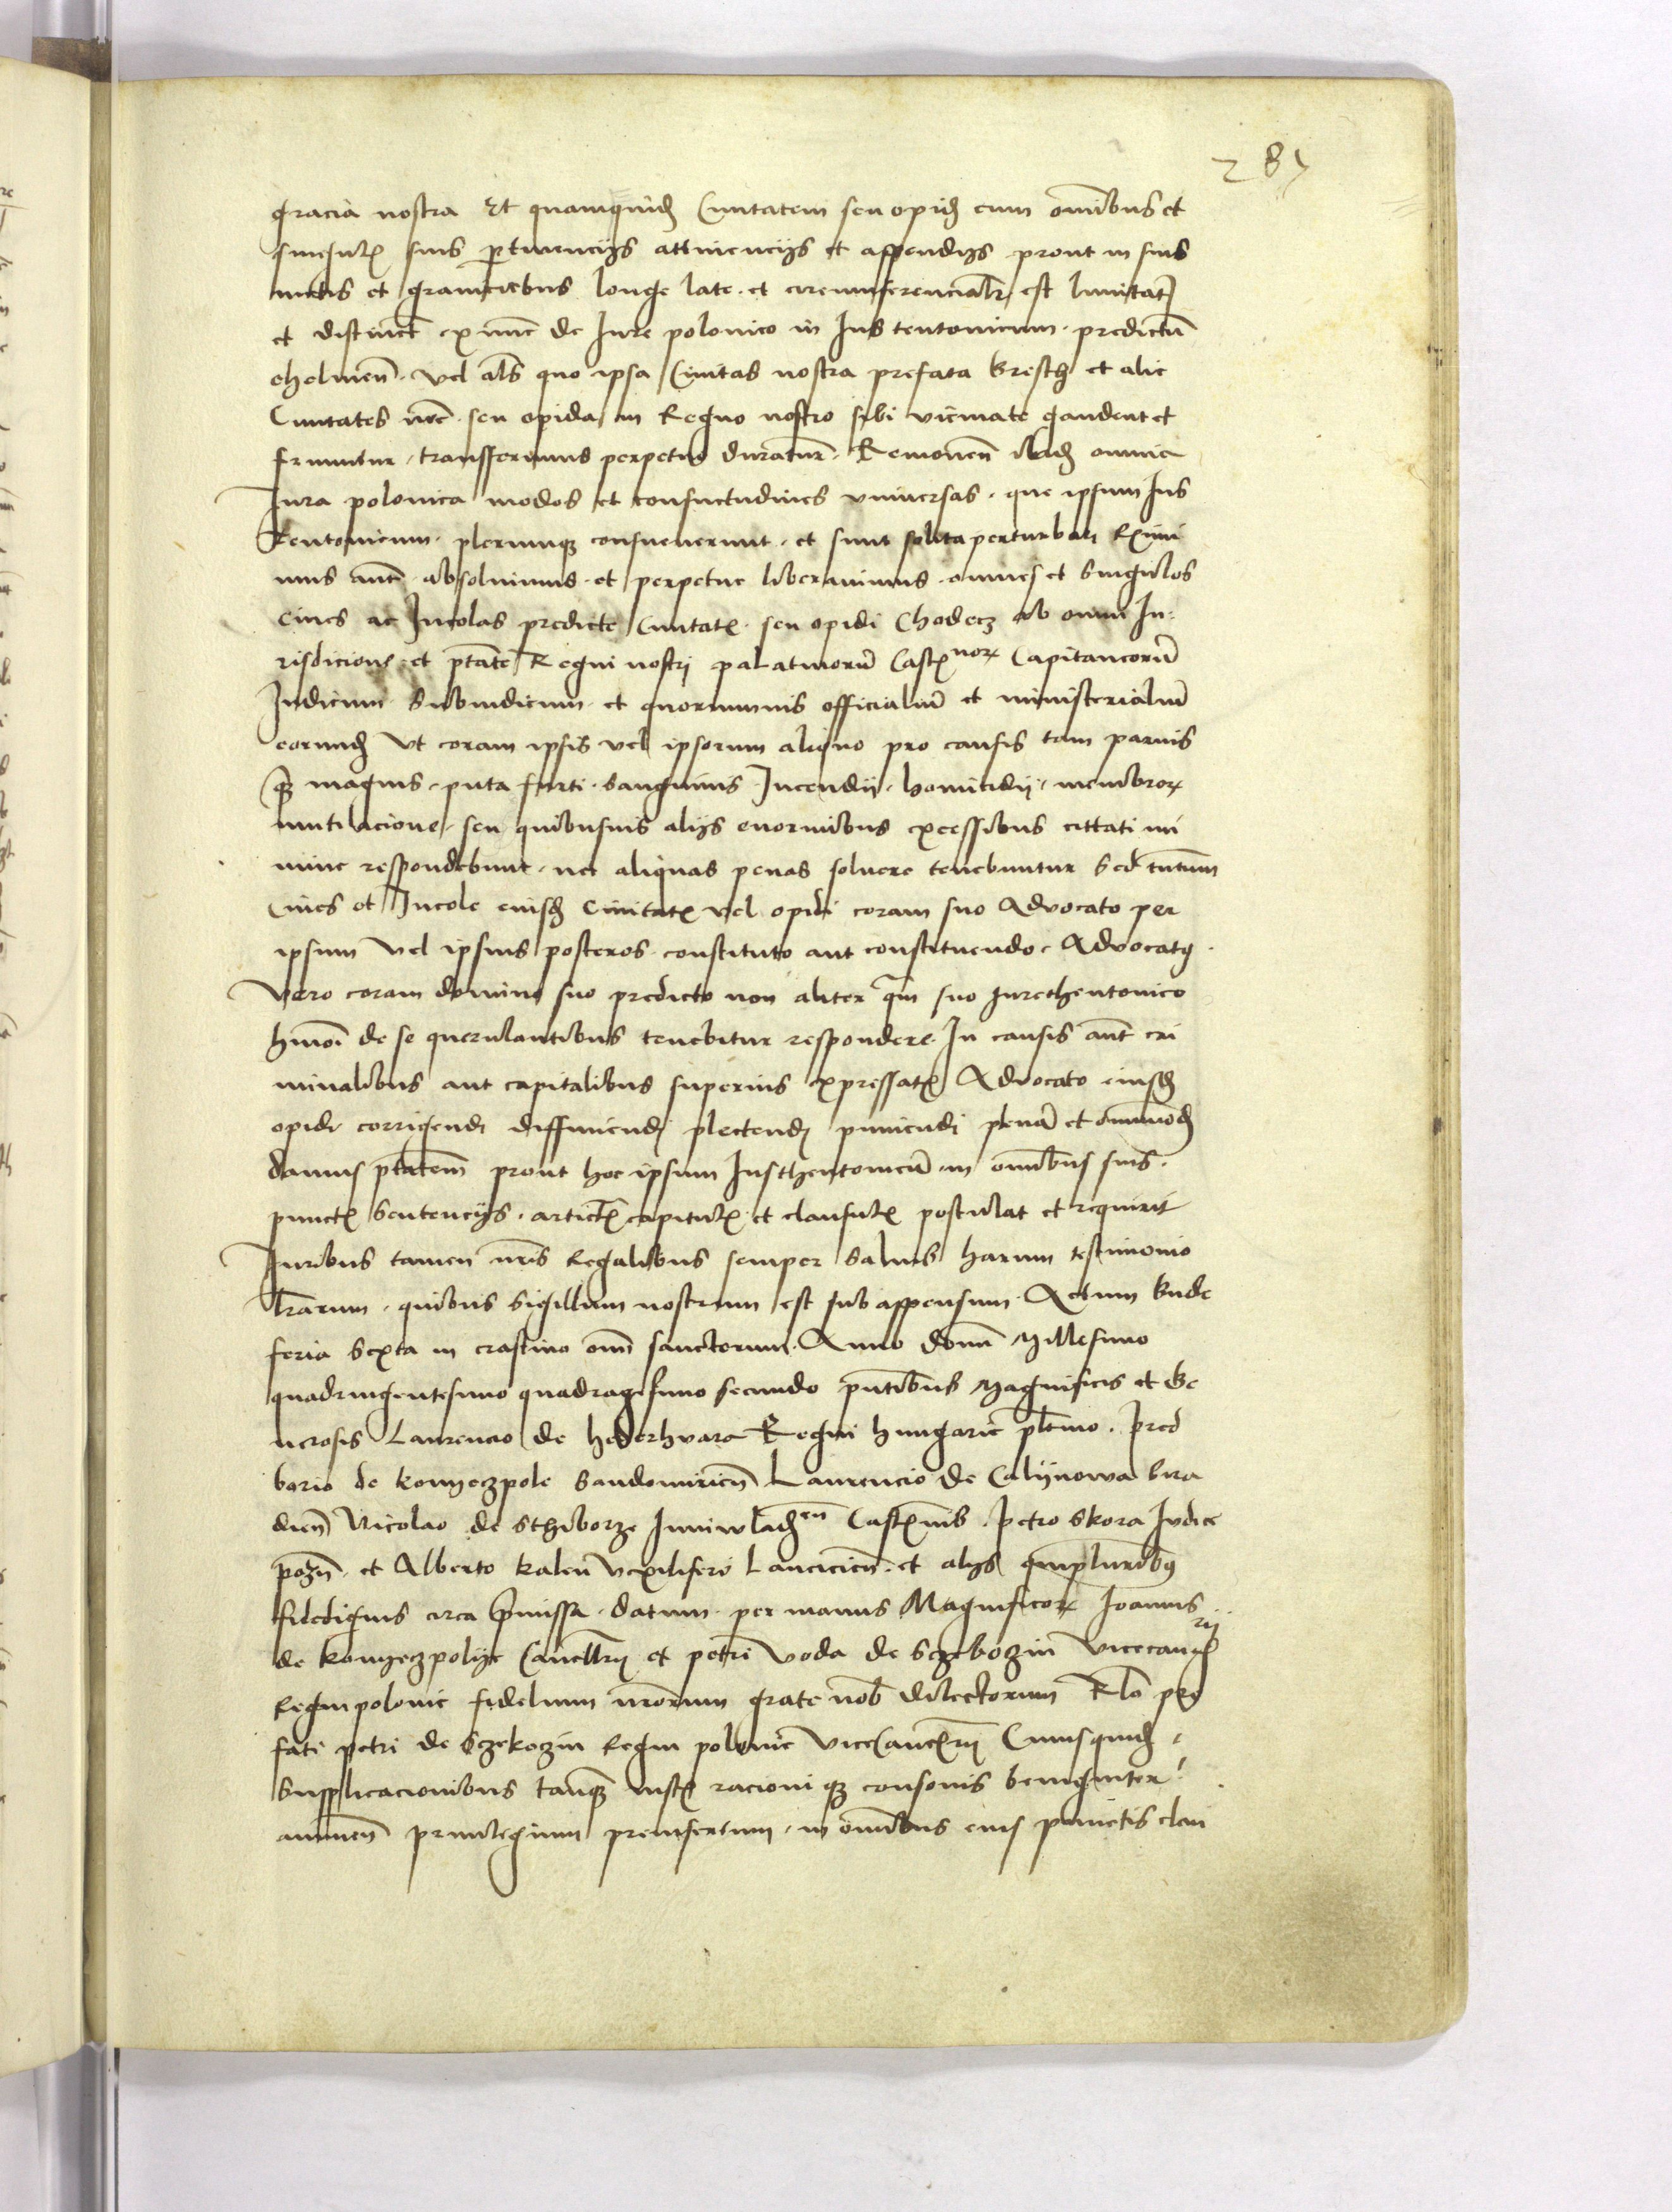 285
gracia nostra Et quamquidꝫ Ciuitatem seu opidꝫ cum omībus et
singulꝭ suis ꝑtinencijs attinencijs et appendijs prout in suis
metis et graniciebus longe late et circumferencialr̄ est limitatꝭ
et distinct̄ ex nunc de Iure polonico in Ius teutonicum predictū
chelmeñ vel als̄ quo ipsa Ciuitas nostra prefata Bresth et alie
Ciuitates nr̄e seu opida in Regno nostro sibi vicinate gaudent et
fruuntur transferimus perpetuo duratur̄ Remouen̄ ibidꝫ omnia
Iura polonica modos et consuetudines vniuersas que ipsum Ius
Teutonicum plerumqꝫ consueuerunt et sunt solita perturbari Eximi
mus aut̄ absoluimus et perpetue liberauimus omnes et singulos
Ciues ac Incolas predicte Ciuitatꝭ seu opidi Chodecz ab omni Iu
risdicione et ptāte Regni nostri palatinorū Castꝭnorꝝ Capitaneorū
Iudicum Subiudicum et quorumuis officialiū et ministerialiū
eorundꝫ Vt coram ipsis vel ipsorum aliquo pro causis tam paruis
qꝫ magnis puta furti sanguinis Incendij homicidij membrorꝝ
mutilacione seu quibusuis alijs enormibus excessibus cittati mi
nime respondebunt nec aliquas penas soluere tenebuntur Sed tn̄tum̄
Ciues et Incole eiusdꝫ Ciuitatꝭ vel opidi coram suo Aduocato per
ipsum vel ipsius posteros constituto aut constituendo Aduocatꝯ
Vero coram domino suo predicto non aliter qm̄ suo Iurethentonico
hmōi de se querulantibus tenebitur respondere In causis aut̄ cri
minalibus aut capitalibus superius expressatꝭ Aduocato eiusdꝫ
opidi corrigendi diffiniendi plectendi puniendi plenā et omnimodꝫ
damus ptātem̄ prout hoc ipsum Iusthentonicū in omībus suis
punctꝭ Sentencijs articlꝭ capitulꝭ et clausulꝭ postulat et requirit
Iuribus tamen nr̄is Regalibus semper saluis harum testimonio
lr̄arum quibus Sigillum nostrum est subappensum Actum Bude
feria Sexta in crastino om̄i sanctorum Anno domī Millesimo
quadringentesimo quadragesimo secundo pn̄tibus Magnificis et Ge
nerosis Laurencio de hederhuara Regni hungarie pltīno Pred
borio de konyeczpole Sandomirieñ Laurencio de Calijnowa Sira
dieñ Nicolao de Sthiborze Iuniwladꝫeñ Castꝭnis Petro Skora Iudice
pozñ et Alberto kaleñ Vexilifero Lancicieñ et alijs qm̄pluribꝯ
fidedignis circa p̄missa datum per manus Magnificorꝝ Ioannis
de konyeczpolye Cancllr̄ij et petri voda de Sczekoczin Vicecancꝭrij
Regni polonie fidelium nr̄orum grate nob̄ dilectorum Rlō pre
fati petri de Sczekoczin Regni polonie ViceCancꝭrij Cuiusquidꝫ
Supplicacionibus tanqꝫ iustꝭ racioni qꝫ consonis benigniter
annueñ priuilegium preinsertum in omībus eius punctis clau